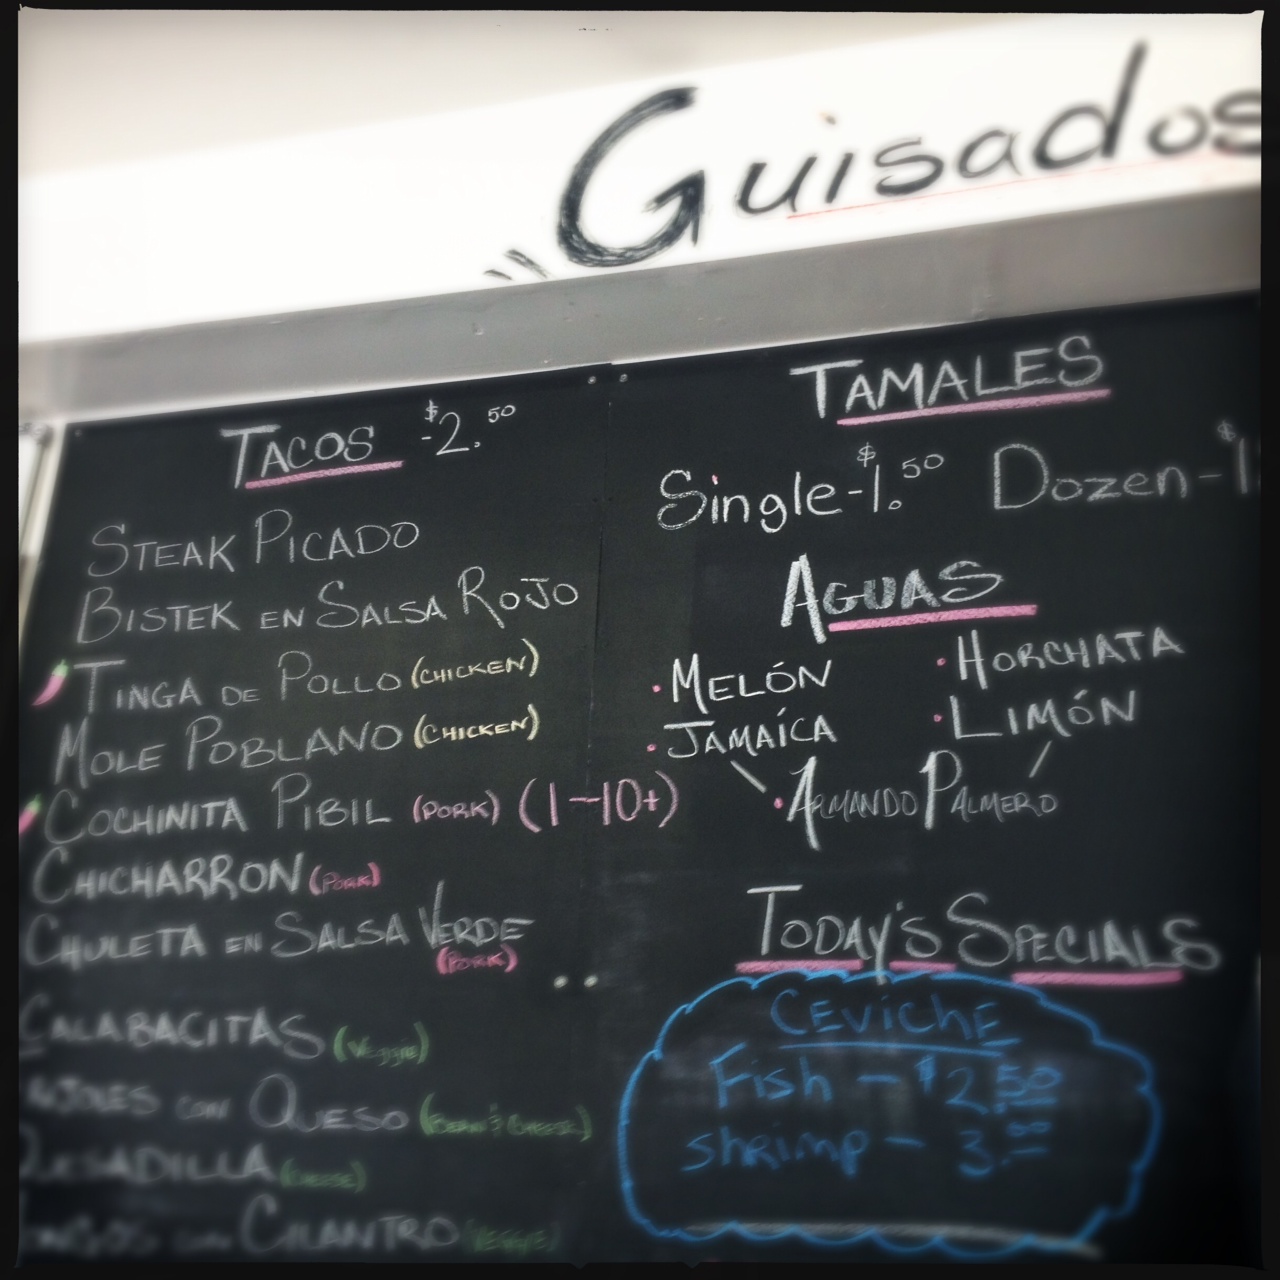 Guisados
TACOS -$2.50
STEAK PICADO
BISTEK EN SALSA ROJO
TINGA DE POLLO (CHICKEN)
MOLE POBLANO (CHICKEN)
COCHINITA PIBIL (PORK) (1-10+)
CHICHARRON (PORK)
CHULETA EN SALSA VERDE
(PORK)
CALABACITAS (VEGGIE)
CON QUESO (BEAN & CHEESE)
QUESADILLA (CHEESE)
CON CILANTRO (VEGGIE)
TAMALES
Single-$1.50 Dozen-$1
AGUAS
• MELÓN • HORCHATA
• JAMAÍCA • LIMÓN
• ARMANDO PALMERO
TODAY'S SPECIALS
CEVICHE
Fish - $2.50
shrimp - 3.00